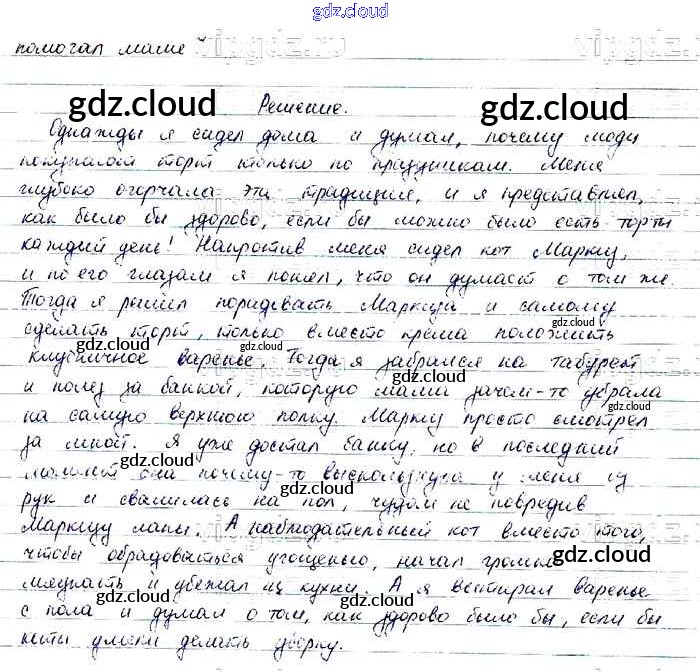 gdz.cloud
помогал маме
vipgdz.ru
gdz.cloud
Решение.
gdz.cloud
Однажды я сидел дома и думал, почему люди
покупают торт только по праздникам. Меня
глубоко огорчала эта традиция, и я представлял,
как было бы здорово, если бы можно было есть торты
каждый день! Напротив меня сидел кот Маркиз,
и по его глазам я понял, что он думает о том же.
Тогда я решил порадовать Маркиза и самому
сделать торт, только вместо крема положить
gdz.cloud
gdz.cloud
клубничное варенье. Тогда я забрался на табурет
gdz.cloud
и полез за банкой, которую мама зачем-то убрала
на самую верхнюю полку. Маркиз просто смотрел
gdz.cloud
за мной. Я уже достал банку, но в последний
gdz.cloud
момент она почему-то выскользнула у меня из
gdz.cloud
рук и свалилась на пол, чудом не повредив
Маркизу лапы. А наблюдательный кот вместо того,
чтобы обрадоваться угощенью, начал громко
gdz.cloud
gdz.cloud
мяукать и убежал из кухни. А я вытирал варенье
gdz.cloud
с пола и думал о том, как здорово было бы, если бы
коты умели делать уборку.
gdz.cloud